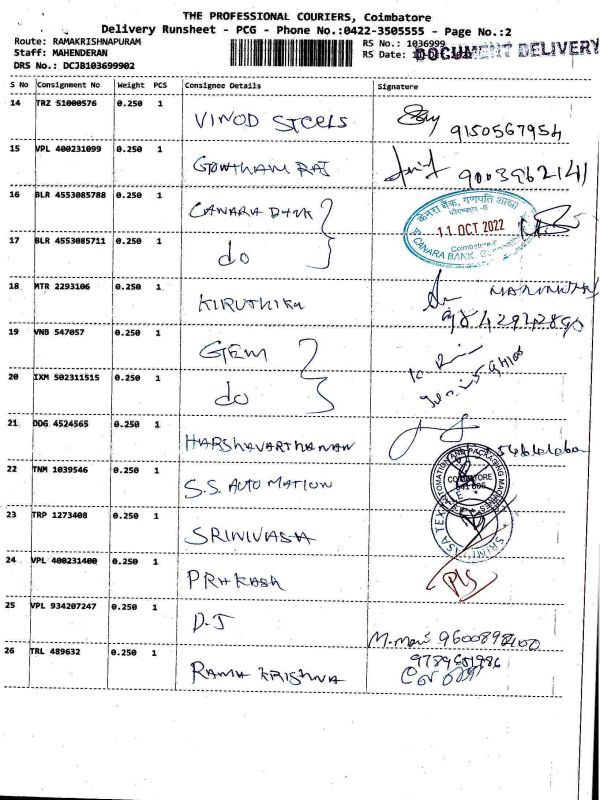 THE PROFESSIONAL COURIERS, Coimbatore
Delivery Runsheet - PCG - Phone No.:0422-3505555 - Page No.:2
Route: RAMAKRISHNAPURAM
RS No.: 1036999
DOCUMENT DELIVERY
Staff: MAHENDERAN
RS Date:
DRS No.: DCJB103699902
S No Consignment No Weight PCS Consignee Details Signature
14 TRZ 51000576 0.250 1 VINOD STEELS 9150567954
15 VPL 400231099 0.250 1 GOWTHAM RAJ 9003962141
16 BLR 4553085788 0.250 1 CANARA BANK
केनरा बैंक, गणपति शाखा
11 OCT 2022
Coimbatore-6
CANARA BANK,
17 BLR 4553085711 0.250 1 do
18 MTR 2293106 0.250 1 KIRUTHIKA
19 VNB 547057 0.250 1 GEM
20 IXM 502311515 0.250 1 do
21 DDG 4524565 0.250 1 HARSHAVARTHANAN
22 TNM 1039546 0.250 1 S.S. AUTOMATION
AUTOMATION AND PACKAGING MACHINES
COIMBATORE
641 006
23 TRP 1273408 0.250 1 SRINIVASA
SRINIVASA TEX
24 VPL 400231400 0.250 1 PRAKASH
25 VPL 934207247 0.250 1 D.J
M. Mani 9600898400
26 TRL 489632 0.250 1 RAMA KRISHNA